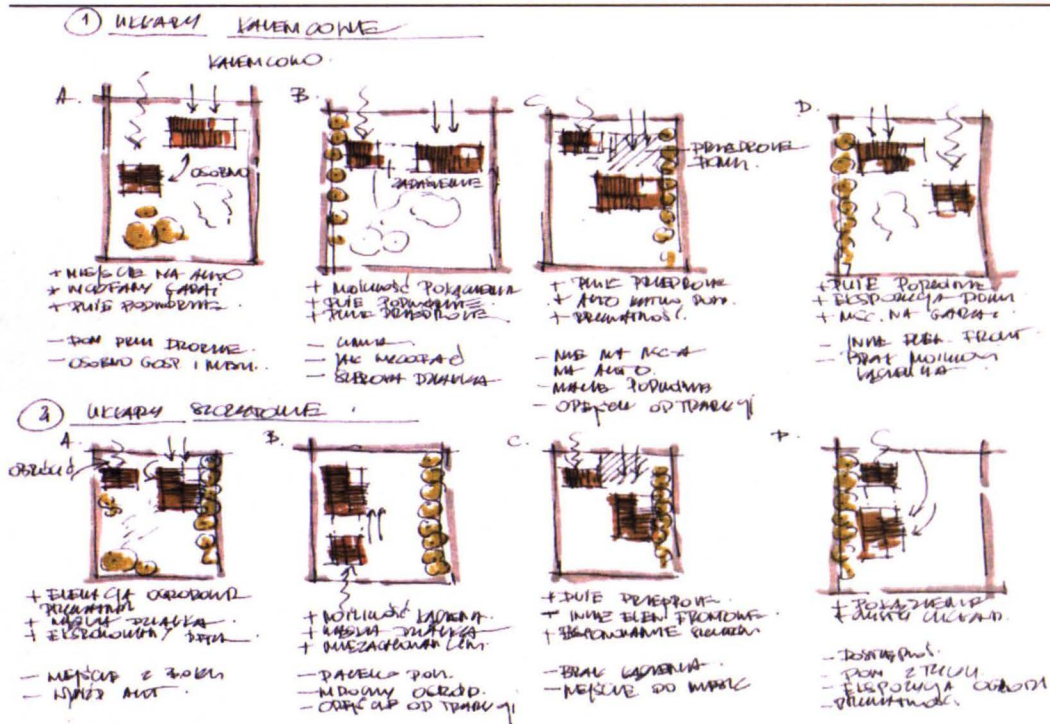 1 UKŁADY KALENICOWE
KALENICOWO
A. B. C. D.
OSOBNO
ZADASZENIE
PRZEDPOLE
DOMU.
+ MIEJSCE NA AUTO
+ WCOFANY GARAŻ
+ DUŻE PODWÓRZE
- DOM PRZY DRODZE.
- OSOBNO GOSP I MIESZ..
+ MOŻLIWOŚĆ POŁĄCZENIA
+ DUŻE PODWÓRZE
+ DUŻE PRZEDPOLE
- JAK WCOFAĆ
- SZEROKA DZIAŁKA
+ DUŻE PRZEDPOLE
+ AUTO
+ PRYWATNOŚĆ.
- NIE MA MSC-A
NA AUTO.
- MAŁE PODWÓRZE
- ODEJŚCIE OD TRADYCJI
+ DUŻE PODWÓRZE
+ EKSPOZYCJA DOMU
+ MSC. NA GARAŻ.
- INNE FRONT
- BRAK MOŻLIWOŚCI
ŁĄCZENIA
2 UKŁADY SZCZYTOWE
A. B. C. D.
OBRÓCIĆ
+ ELEWACJA OGRODOWA
PRYWATNA
+ WĄSKA DZIAŁKA
+ EKSPONOWANY DETAL
- WEJŚCIE Z BOKU
- WJAZD AUT.
+ MOŻLIWOŚĆ ŁĄCZENIA
+ WĄSKA DZIAŁKA
+ NIEZACHOWAN LINII
- DALEKO DOM.
- WIDOCZNY OGRÓD.
- ODEJŚCIE OD TRADYCJI
+ DUŻE PRZEDPOLE.
+ INNE ELEW FRONTOWE.
- BRAK ŁĄCZENIA.
- WEJŚCIE DO
+ POŁĄCZENIE
+ CZYSTY UKŁAD.
- DOSTĘPNOŚĆ.
- DOM Z TYŁU.
- EKSPOZYCJA OGRODU
- PRYWATNOŚĆ.